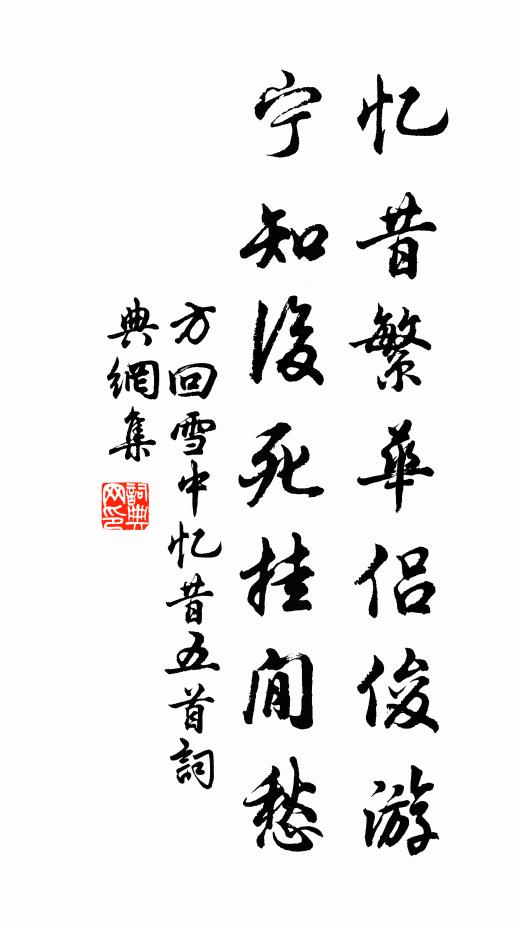 忆昔繁华侣俊游
宁知後死挂閒愁
方回雪中忆昔五首詞
典網集
詞典网印